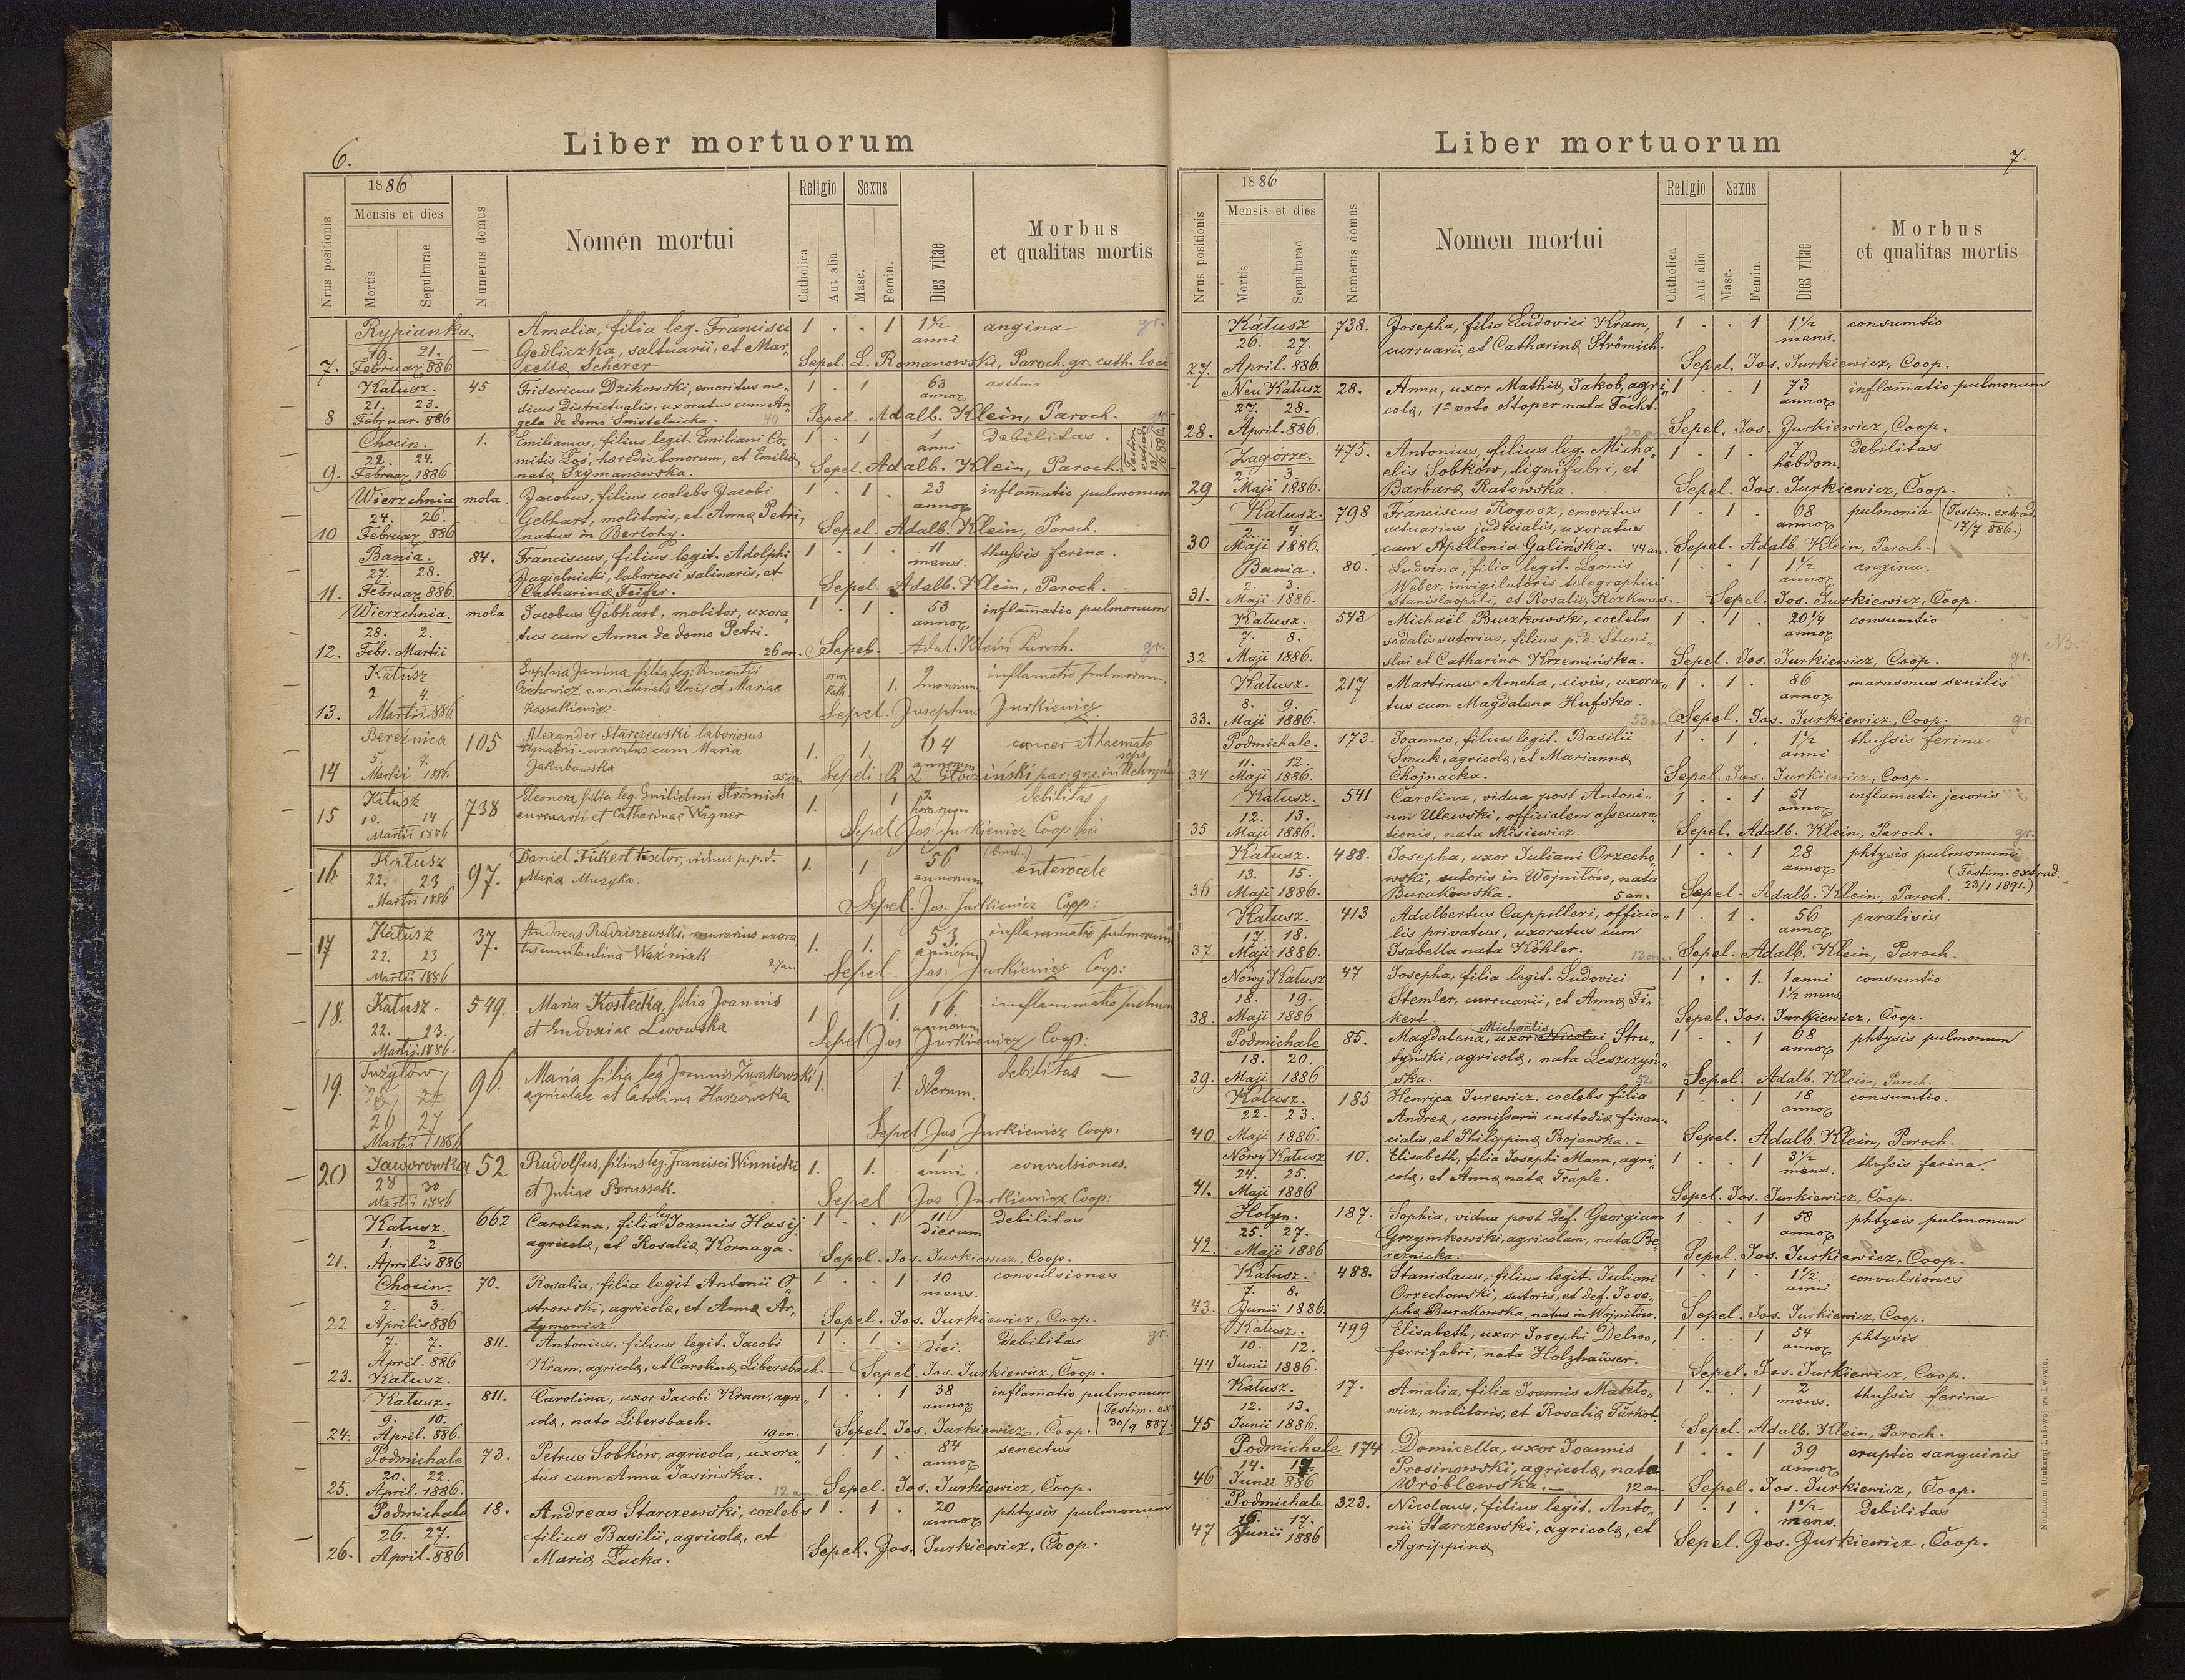 6.
Liber mortuorum
Nrus positionis
1886
Mensis et dies
Mortis
Sepulturae
Numerus domus
Nomen mortui
Religio
Catholica
Aut alia
Sexus
Masc.
Femin.
Dies vitae
Morbus
et qualitas mortis
Rypianka. Amalia, filia leg. Francisci 1 . . 1 1 1/2 angina gr.
19. 21. — Gedliczka, saltuarii, et Mar„ anni
7. Februar 886 cellæ Scherer Sepel. L. Romanowski, Paroch. gr. cath. loci
Katusz. 45 Fridericus Dzikowski, emeritus me„ 1 . 1 63 asthma
21. 23. dicus districtualis, uxoratus cum An„ annor
8 Februar. 886 gela de domo Smistelnicka. 40 Sepel. Adalb. Klein, Paroch.
Chocin. 1. Emilianus, filius legit. Emiliani Co„ 1 . 1 . 1 debilitas.
22. 24. mitis Łoś, hæredis bonorum, et Emiliæ anni
9. Februar 1886 natæ Szymanowska. Sepel. Adalb. Klein, Paroch. Testim. extrad.
Wierzchnia mola. Jacobus, filius coelebs Jacobi 1 . 1 . 23 inflam̄atio pulmonum
24. 26. Gebhart, molitoris, et Annæ Petri, annor
10 Februar 886 natus in Bertohy. Sepel. Adalb. Klein, Paroch.
Bania. 84. Franciscus, filius legit. Adolphi 1 . 1 . 11 thussis ferina.
27. 28. Jagielnicki, laboriosi salinaris, et mens.
11. Februar 886. Catharinæ Feifer. Sepel. Adalb. Klein, Paroch.
Wierzchnia. mola Jacobus Gebhart, molitor, uxora„ 1 . 1 . 53 inflam̄atio pulmonum
28. 2. tus cum Anna de domo Petri. annor
12. Febr. Martii 26 an. Sepel. Adal. Klein Paroch. gr.
Katusz Sophia Janina filia leg. Vincentii orm. 1. 2 inflamatio pulmonum.
2 4. Czechowicz, c.r. notarialis loci, et Mariae Kath mensium
13. Martii 886 Kassakiewicz. Sepel. Josephus Jurkiewicz
Bereźnica 105 Alexander Starczewski laboriosus 64 cancer et haemato
5. 7. uxoratus cum Maria 1. 1. annorum
14 Martii 1886. Jakubowska Sepeli: par. gr.
Katusz 738 Eleonora filia leg. Guilielmi Strömich 1. 1 2 debilitas
15 13. 14 curruarii et Catharinae Wagner horarum
Martii 1886 Sepel Jos. Jurkiewicz Coop. loci
16 Katusz 97. Daniel Fükert textor, viduus p.p.d. 1. 1 56 enterocele
22. 23 Maria Muzyka. annorum
Martii 1886 Sepel. Jos. Jurkiewicz Coop:
17 Katusz 37. Andreas Radziszewski, uxora 1. 1. 53. inflammatio pulmonum
22. 23 tus cum Paulina Woźniak annorum
Martii 1886 27 an Sepel. Jos: Jurkiewicz Coop:
18. Katusz. 549. Maria Kostecka, filia Joannis 1 1. 16. inflammatio pulmon
22. 23. et Eudoxiae Lwowska annorum
Martii 1886. Sepel Jos Jurkiewicz Coop:
19. 96. Maria filia leg Joannis Żurakowski 1. 1. 9 debilitas —
agricolae et Carolina Haszowska dierum.
26 27
Martii 1886 Sepel Jos Jurkiewicz Coop:
20 Jaworowka 52 Rudolfus, filius leg. Francisci Winnicki 1. 1. 1 convulsiones.
28 30 et Juliae Brussak. anni.
Martii 1886 Sepel Jos Jurkiewicz Coop:
Katusz. 662 Carolina, filia leg Joannis Hasij, 1 . . 1 11 debilitas
1. 2. agricolæ, et Rosaliæ Kornaga. dierum
21. Aprilis 886 Sepel. Jos. Jurkiewicz, Coop.
Chocin. 70. Rosalia, filia legit Antonii O„ 1 . . 1 10 convulsiones
2. 3. strowski, agricolæ, et Annæ Ar„ mens.
22 Aprilis 886 tymowicz Sepel. Jos. Jurkiewicz, Coop.
7. 7. 811. Antonius, filius legit. Jacobi 1 . 1 . 1 debilitas gr.
April. 886 Kram, agricolæ, et Carolinæ Libersbach. — diei
23. Katusz. Sepel. Jos. Jurkiewicz, Coop.
Katusz. 811. Carolina, uxor Jacobi Kram, agri„ 1 . . 1 38 inflam̄atio pulmonum
9. 10. colæ, nata Libersbach. annor (Testim. ex
24. April. 886. 19 an. Sepel. Jos. Jurkiewicz, Coop. 30/9 887.
Podmichale 73. Petrus Sobków, agricola, uxora„ 1 . 1 . 84 senectus
20. 22. tus cum Anna Jasińska. annor
25. April. 1886. 12 an. Sepel. Jos. Jurkiewicz, Coop.
Podmichale 18. Andreas Starczewski, coelebs 1 . 1 . 20 phtysis pulmonum
26. 27. filius Basilii, agricolæ, et annor
26. April. 886 Mariæ Łucka. Sepel. Jos. Jurkiewicz, Coop.
7.
Liber mortuorum
Nrus positionis
1886
Mensis et dies
Mortis
Sepulturae
Numerus domus
Nomen mortui
Religio
Catholica
Aut alia
Sexus
Masc.
Femin.
Dies vitae
Morbus
et qualitas mortis
Katusz 738. Josepha, filia Ludovici Kram, 1 . . 1 1 1/2 consumtio
26. 27. curruarii, et Catharinæ Strömich. mens.
27. April. 886. Sepel. Jos. Jurkiewicz, Coop.
Neu Katusz 28. Anna, uxor Mathiæ Jakob, agri„ 1 . . 1 73 inflam̄atio pulmonum
27. 28. colæ, 1º voto Stoper nata Focht. annor
28. April. 886. Sepel. Jos. Jurkiewicz, Coop.
Zagórze. 475. Antonius, filius leg. Micha„ 1 . 1 . 7 debilitas
2. 3. elis Sobków, lignifabri, et hebdom.
29 Maji 1886. Barbaræ Ratowska. Sepel. Jos. Jurkiewicz, Coop.
Katusz. 798 Franciscus Rogosz, emeritus 1 . 1 . 68 pulmonia (Testim. extrad.
2. 4. actuarius judicialis, uxoratus annor 17/7 886.)
30 Maji 1886. cum Apollonia Galińska. 44 an. Sepel. Adalb. Klein, Paroch.
Bania. 80. Ludvina, filia legit. Leonis 1 . . 1 1 1/2 angina.
2. 3. Weber, invigilatoris telegraphici annor
31. Maji 1886. Stanislaopoli, et Rosaliæ Rozkwas. — Sepel. Jos. Jurkiewicz, Coop.
Katusz. 543 Michaël Buczkowski, coelebs 1 . 1 . 20 1/4 consumtio
7. 8. sodalis sutorius, filius p.d. Stani„ annor
32 Maji 1886. slai et Catharinæ Krzemińska. Sepel. Jos. Jurkiewicz, Coop. gr. NB.
Katusz. 217 Martinus Amcha, civis, uxora„ 1 . 1 . 86 marasmus senilis
8. 9. tus cum Magdalena Hufska. annor
33. Maji 1886. 53 an Sepel. Jos. Jurkiewicz, Coop. gr.
Podmichale. 173. Joannes, filius legit. Basilii 1 . 1 . 1 1/2 thussis ferina
11. 12. Smuk, agricolæ, et Mariannæ anni
34 Maji 1886. Chojnacka. Sepel. Jos. Jurkiewicz, Coop.
Katusz. 541 Carolina, vidua post Antoni„ 1 . . 1 51 inflam̄atio jecoris
12. 13. um Ulewski, officialem assecura„ annor
35 Maji 1886. tionis, nata Misiewicz. Sepel. Adalb. Klein, Paroch. gr.
Katusz. 488. Josepha, uxor Juliani Orzecho„ 1 . . 1 28 phtysis pulmonum
13. 15. wski, sutoris in Wojniłów, nata annor (Testim. extrad.
36 Maji 1886. Burakowska. 5 an. Sepel. Adalb. Klein, Paroch. 23/1 1891.)
Katusz. 413 Adalbertus Cappilleri, officia„ 1 . 1 . 56 paralisis
17. 18. lis privatus, uxoratus cum annor
37. Maji 1886. Isabella nata Köhler. 13 an. Sepel. Adalb. Klein, Paroch.
Nowy Katusz 47 Josepha, filia legit. Ludovici 1 . . 1. 1 anni consumtio
18. 19. Stemler, curruarii, et Annæ Fi„ 1 1/2 mens.
38. Maji 1886 kert. Sepel. Jos. Jurkiewicz, Coop.
Podmichale 85. Magdalena, uxor Michaëlis Nicolai Stru„ 1 . . 1 68 phtysis pulmonum
18. 20. tyński, agricolæ, nata Leszczyń„ annor
39. Maji 1886 ska. 52 Sepel. Adalb. Klein, Paroch.
Katusz. 185 Henrica Jurewicz, coelebs filia 1 . . 1 18 consumtio.
22. 23. Andreæ, comissarii custodiæ finan„ annor
40. Maji 1886. cialis, et Philippinæ Bojarska. — Sepel. Adalb. Klein, Paroch.
Nowy Katusz 10. Elisabeth, filia Josephi Mann, agri„ 1 . . 1 3 1/2 thussis ferina.
24. 25. colæ, et Annæ natæ Traple. mens.
41. Maji 1886 Sepel. Jos. Jurkiewicz, Coop.
Hołyn. 187. Sophia, vidua post def. Georgium 1 . . 1 58 phtysis pulmonum
25. 27. Grzymkowski, agricolam, nata Be„ annor
42. Maji 1886 reznicka. Sepel. Jos. Jurkiewicz, Coop.
Katusz. 488. Stanislaus, filius legit. Juliani 1 . 1 . 1 1/2 convulsiones
7. 8. Orzechowski, sutoris, et def. Jose„ anni
43. Junii 1886. phæ Burakowska, natus in Wojniłów. Sepel. Jos. Jurkiewicz, Coop.
Katusz. 499 Elisabeth, uxor Josephi Delwo, 1 . . 1 54 phtysis
10. 12. ferrifabri, nata Holzhäuser. annor
44 Junii 1886. Sepel. Jos. Jurkiewicz, Coop.
Katusz. 17. Amalia, filia Joannis Makto„ 1 . . 1 2 thussis ferina
12. 13. wicz, molitoris, et Rosaliæ Türkot. mens.
45 Junii 1886. Sepel. Adalb. Klein, Paroch.
Podmichale 174 Domicella, uxor Joannis 1 . . 1 39 eruptio sanguinis
14. 17. Prosinowski, agricolæ, nata annor
46 Junii 886 Wróblewska. — 12 an Sepel. Jos. Jurkiewicz, Coop.
Podmichale 323. Nicolaus, filius legit. Anto„ 1 . 1 . 1 1/2 debilitas
16. 17. nii Starczewski, agricolæ, et mens.
47 Junii 1886 Agrippinæ Sepel. Jos. Jurkiewicz, Coop.
Nakładem Drukarni Ludowej we Lwowie.